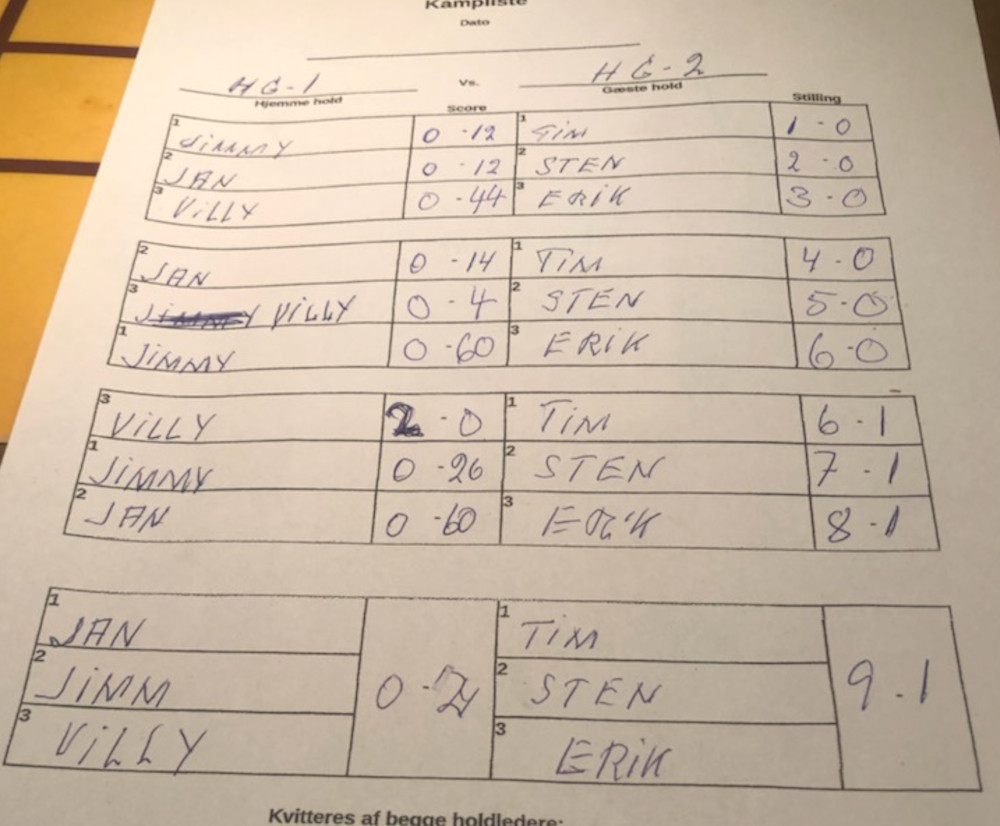 Kampliste
Dato
HG-1 Vs. HG-2
Hjemme hold Gæste hold
Score Stilling
1 JIMMY 0 -12 1 TIM 1 - 0
2 JAN 0 - 12 2 STEN 2 - 0
3 VILLY 0 - 44 3 ERIK 3 - 0
2 JAN 0 - 14 1 TIM 4 - 0
3 VILLY 0 - 4 2 STEN 5 - 0
1 JIMMY 0 - 60 3 ERIK 6 - 0
3 VILLY 2 - 0 1 TIM 6 - 1
1 JIMMY 0 - 26 2 STEN 7 - 1
2 JAN 0 - 60 3 ERIK 8 - 1
1 JAN 1 TIM
2 JIMM 0 - 2 STEN 9 - 1
3 VILLY 3 ERIK
Kvitteres af begge holdledere: